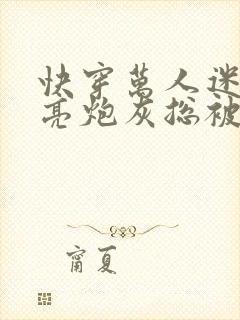 快穿萬人迷
亮炮灰总被
甯夏